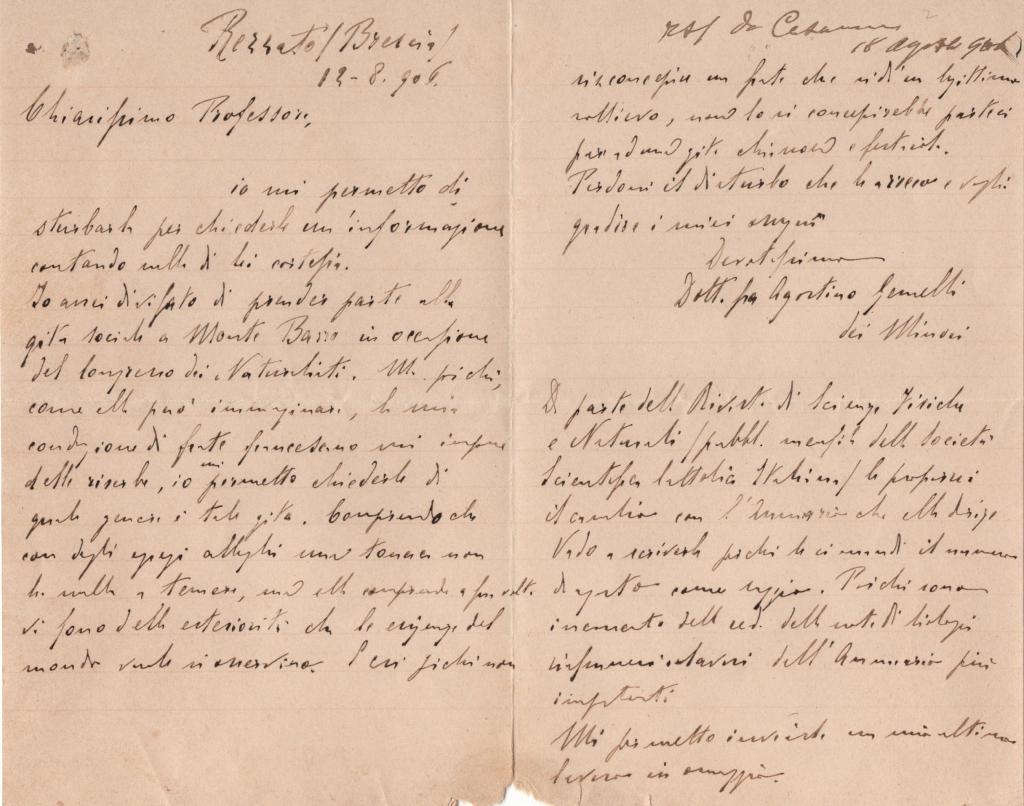 Rezzato (Brescia)
12-8.906.
Chiarissimo Professore,
io mi permetto di
sturbarla per chiederle un'informazione
contando nella di lei cortesia.
Io avrei divisato di prender parte alla
gita sociale a Monte Barro in occasione
del Congresso dei Naturalisti. Ma poichè,
come ella può immaginare, la mia
condizione di frate francescano mi impone
delle riserbe, io mi permetto chiederle di
quale genere è tale gita. Comprendo che
con degli egregi colleghi una tonaca non
ha nulla a temere, ma ella comprende a sua volta.
Vi sono delle esteriorità che le esigenze del
mondo vuole si osservino. E così poichè non
da Cesano
18 agosto 906
un frate che in un legittimo
sollievo, non lo si concepirebbe
gita chiassosa e festaiola.
Perdoni il disturbo che le arreco e voglia
gradire i miei ossequi
Devotissimo
Dott. fra Agostino Gemelli
dei Minori
Da parte della Rivista di Scienze Fisiche
e Naturali (pubbl. mensile della Società
Scientifica Cattolica Italiana) le proporrei
il cambio con l'Annuario che ella dirige
Vado a scriverle perchè le si mandi il numero
di agosto come saggio. Poichè sono
incaricato della red. delle note di biologia
dell'Annuario più
importanti
Mi permetto inviarle un mio ultimo
lavoro in omaggio.